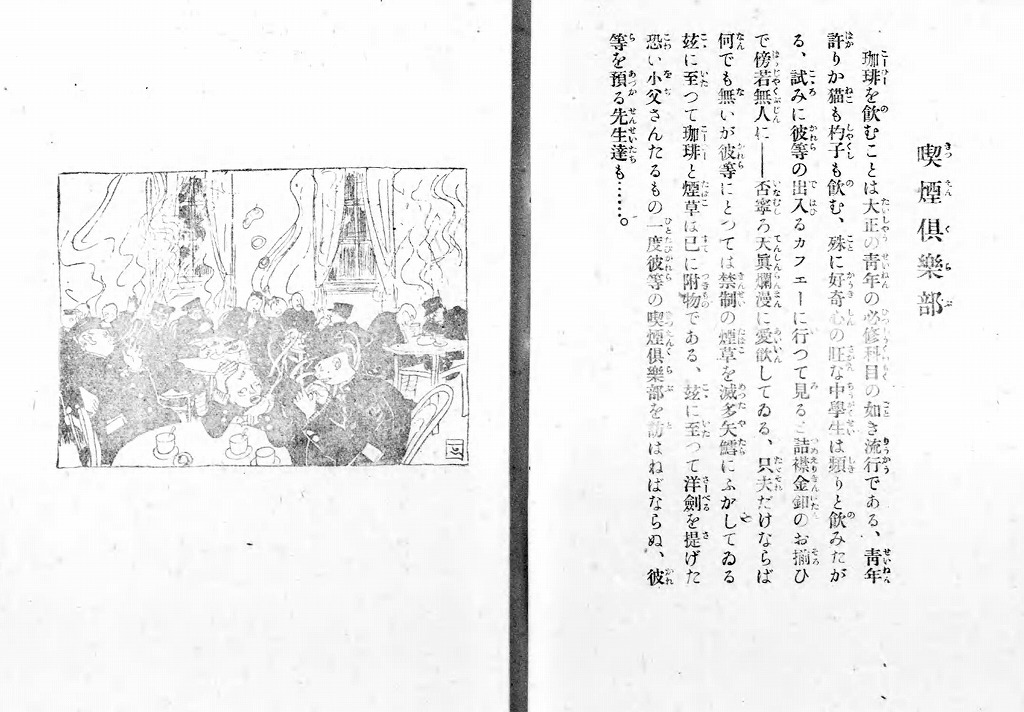 喫煙倶樂部
珈琲を飮むことは大正の靑年の必修科目の如き流行である、靑年
許りか猫も杓子も飮む、殊に好奇心の旺な中學生は頻りと飮みたが
る、試みに彼等の出入るカフェーに行つて見ると詰襟金釦のお揃ひ
で傍若無人に――否寧ろ天眞爛漫に愛飮してゐる、只夫だけならば
何でも無いが彼等にとつては禁制の煙草を滅多矢鱈にふかしてゐる
玆に至つて珈琲と煙草は已に附物である、玆に至つて洋劍を提げた
恐い小父さんたるもの一度彼等の喫煙倶樂部を訪はねばならぬ、彼
等を預る先生達も……。